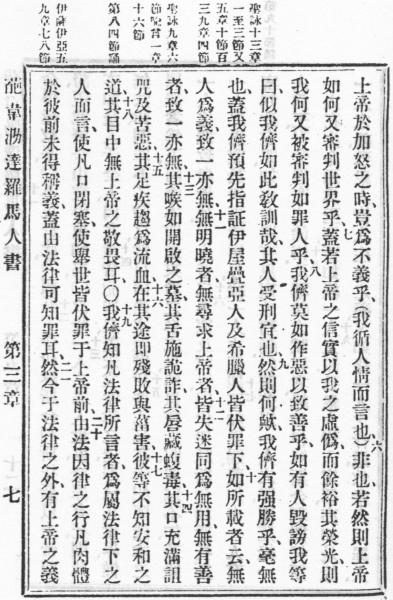 聖詠十三章
一至三節又
五章十節百
三九章四節
聖詠九章六
十六節
伊薩伊亞五
九章七八節
上帝於加怒之時、豈爲不義乎、(我循人情而言也)六非也、若然則上帝
如何又審判世界乎、七蓋若上帝之信實以我之虛僞、而餘裕其榮光、則
我何又被審判如罪人乎、八我儕莫如作惡以致善乎、如有人毀謗我等
曰似我儕如此教訓哉、其人受刑宜也、九然則何歟我儕有强勝乎、毫無
也、蓋我儕預先指証伊屋疊亞人及希臘人皆伏罪下、十如所載者云、無
人爲義、致一亦無、十一無明曉者、無尋求上帝者、十二皆失迷同爲無用、無有善
者、致一亦無、十三其喉如開啟之墓、其舌施詭詐、其唇藏蝮毒、十四其口充滿詛
咒及苦惡、十五其足疾趨爲流血、十六在其途即殘敗與菑害、十七彼等不知安和之
道、十八其目中無上帝之敬畏耳〇十九我儕知凡法律所言者、爲屬法律下之
人而言、使凡口閉塞、使舉世皆伏罪于上帝前、二十由法因律之行凡肉體
於彼前未得稱義、蓋由法律可知罪耳、二一然今于法律之外、有上帝之義
葩韋泐達羅馬人書 第三章 七